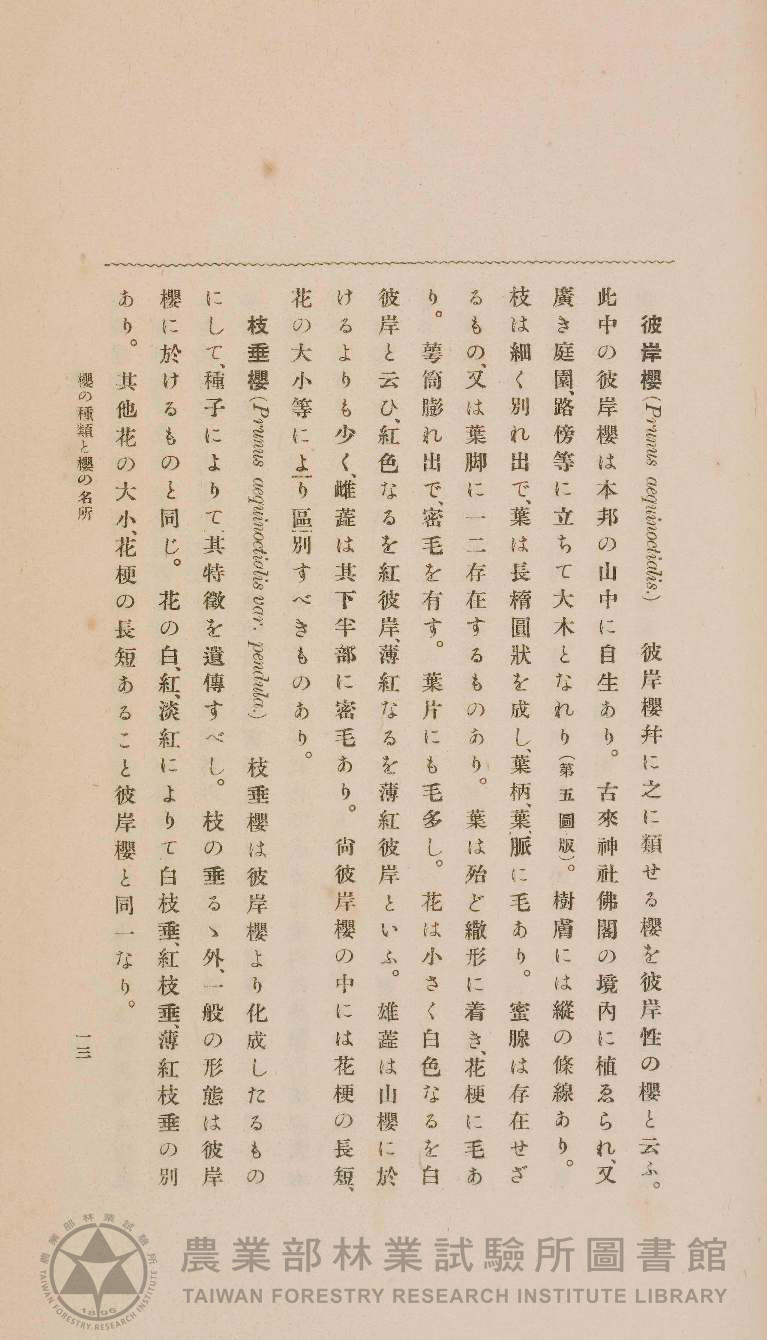 彼岸櫻(Prunus aequinoctialis.)　彼岸櫻幷に之に類せる櫻を彼岸性の櫻と云ふ。
此中の彼岸櫻は本邦の山中に自生あり。古來神社佛閣の境內に植ゑられ、又
廣き庭園、路傍等に立ちて大木となれり(第五圖版)。樹膚には縱の條線あり。
枝は細く別れ出で、葉は長楕圓狀を成し、葉柄、葉脈に毛あり。蜜腺は存在せざ
るもの、又は葉脚に一二存在するものあり。葉は殆ど繖形に着き、花梗に毛あ
り。萼筒膨れ出で、密毛を有す。葉片にも毛多し。花は小さく白色なるを白
彼岸と云ひ、紅色なるを紅彼岸、薄紅なるを薄紅彼岸といふ。雄蕋は山櫻に於
けるよりも少く、雌蕋は其下半部に密毛あり。尙彼岸櫻の中には花梗の長短、
花の大小等により區別すべきものあり。
枝垂櫻(Prunus aequinoctiolis var. pendula.)　枝垂櫻は彼岸櫻より化成したるもの
にして、種子によりて其特徵を遺傳すべし。枝の垂るゝ外、一般の形態は彼岸
櫻に於けるものと同じ。花の白、紅、淡紅によりて白枝垂、紅枝垂、薄紅枝垂の別
あり。其他花の大小、花梗の長短あること彼岸櫻と同一なり。
櫻の種類と櫻の名所
一三
農業部林業試驗所圖書館
TAIWAN FORESTRY RESEARCH INSTITUTE LIBRARY
農業部林業試驗所
TAIWAN FORESTRY RESEARCH INSTITUTE
1895